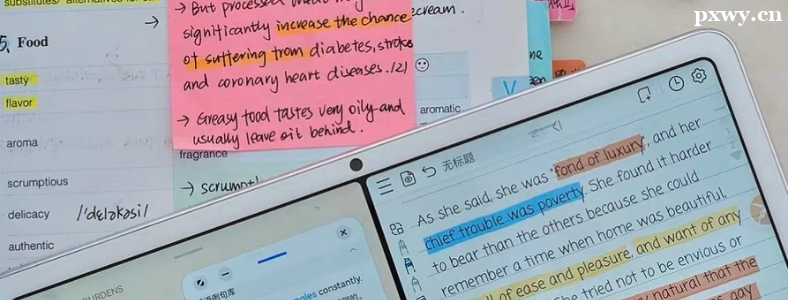 substitutes/ alternatives for
→ But processed
significantly increase the chance
of suffering from diabetes, stroke
and coronary heart diseases. /21
→ Greasy food tastes very oily and
usually leave oil behind.
cream.
5、Food
tasty
flavor
aroma
scrumptious
delicacy /'deləkəsi/
authentic
fragrance
→
aromatic
BURDENS
constantly.
例句库
无标题
As she said, she was fond of luxury, and her
chief trouble was poverty. She found it harder
to bear than the others because she could
remember a time when home was beautiful,
of ease and pleasure, and want of any
She tried not to be envious or
natural that the
gay
pxwy.cn